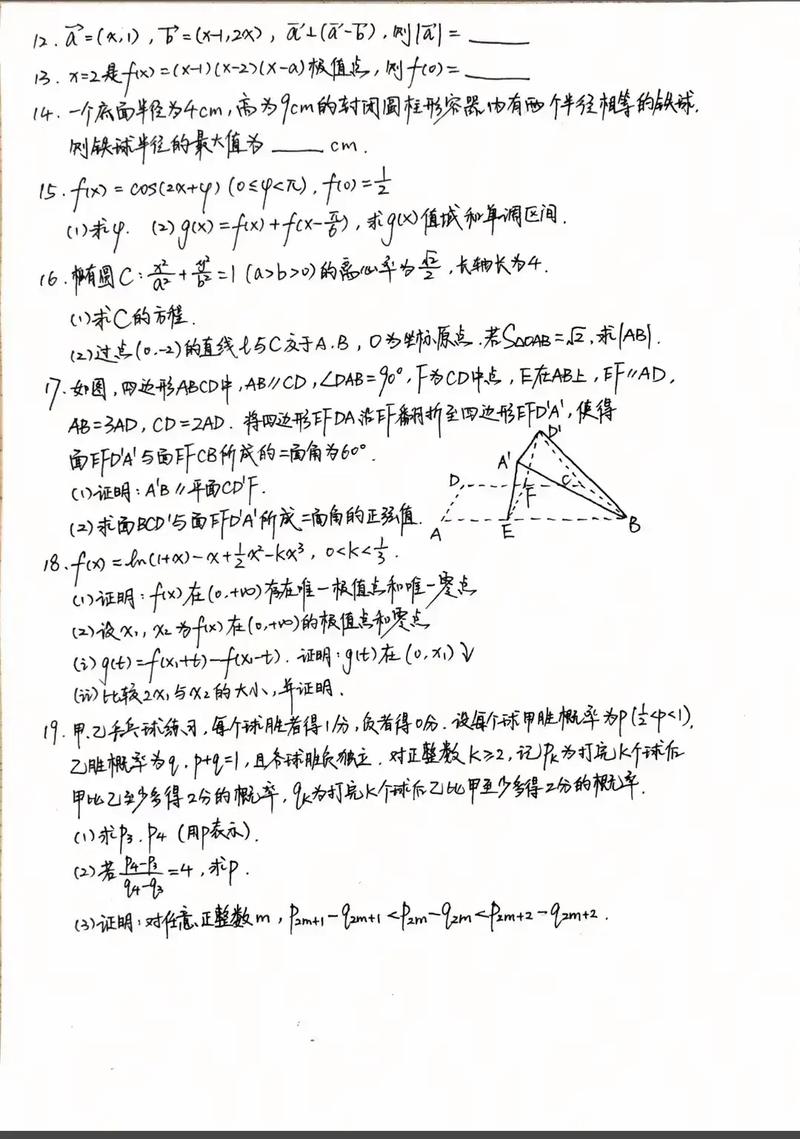 12. a⃗=(x,1), b⃗=(x-1,2x), a⃗⊥(a⃗-b⃗), 则|a⃗|= ______
13. x=2是f(x)=(x-1)(x-2)(x-a)极值点,则f(0)= ______
14. 一个底面半径为4cm,高为9cm的封闭圆柱形容器内有两个半径相等的铁球,
则铁球半径的最大值为 ____ cm.
15. f(x)=cos(2x+φ)(0≤φ<π), f(0)=1/2
(1)求φ. (2)g(x)=f(x)+f(x-π/6),求g(x)值域和单调区间.
16. 椭圆C: x²/a²+y²/b²=1 (a>b>0)的离心率为√2/2,长轴长为4.
(1)求C的方程.
(2)过点(0,-2)的直线l与C交于A.B, O为坐标原点.若S△OAB=√2,求|AB|.
17. 如图,四边形ABCD中,AB∥CD,∠DAB=90°,F为CD中点,E在AB上,EF∥AD,
AB=3AD,CD=2AD.将四边形EFDA沿EF翻折至四边形EFD'A',使得
面EFD'A'与面EFCB所成的二面角为60°.
(1)证明:A'B∥平面CD'F.
(2)求面BCD'与面EFD'A'所成二面角的正弦值.
D'
A'
D
F
C
A
E
B
18. f(x)=ln(1+x)-x+1/2x²-kx³, 0<k<1/3.
(1)证明:f(x)在(0,+∞)存在唯一极值点和唯一零点
(2)设x₁,x₂为f(x)在(0,+∞)的极值点和零点
(i)g(t)=f(x₁+t)-f(x₁-t).证明:g(t)在(0,x₁)↓
(ii)比较2x₁与x₂的大小,并证明.
19. 甲.乙乒乓球练习,每个球胜者得1分,负者得0分.设每个球甲胜概率为p(1/2<p<1),
乙胜概率为q,p+q=1,且各球胜负独立.对正整数k≥2,记pₖ为打完k个球后
甲比乙至少多得2分的概率,qₖ为打完k个球后乙比甲至少多得2分的概率.
(1)求p₃.p₄(用p表示).
(2)若(p₄-p₃)/(q₄-q₃)=4,求p.
(3)证明:对任意正整数m, p₂ₘ₊₁-q₂ₘ₊₁<p₂ₘ-q₂ₘ<p₂ₘ₊₂-q₂ₘ₊₂.